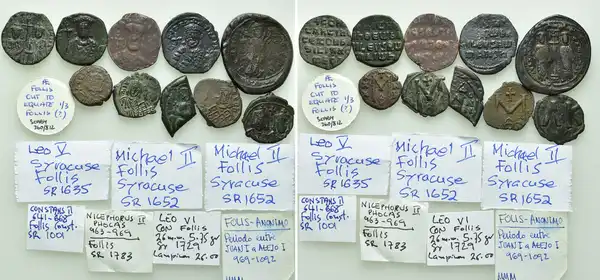 AE
FOLLIS
CUT TO
EQUATE 1/3
FOLLIS (?)
LEO V
Syracuse
Follis
SR 1635
Michael II
Follis
Syracuse
SR 1652
Michael II
Follis
Syracuse
SR 1652
CONSTANS II
641-668
Follis Const.
SR 1001
NICEPHORUS II
PHOCAS
963-969
Follis
SR 1783
LEO VI
CON Follis
26mm 5.75 gr
Sr 1729
Lampinon 26.00
FOLIS-ANONIMO
Periodo entre
JUAN I a ALEJO I
969-1092
AE
FOLLIS
CUT TO
EQUATE 1/3
FOLLIS (?)
LEO V
Syracuse
Follis
SR 1635
Michael II
Follis
Syracuse
SR 1652
Michael II
Follis
Syracuse
SR 1652
CONSTANS II
641-668
Follis Const.
SR 1001
NICEPHORUS II
PHOCAS
963-969
Follis
SR 1783
LEO VI
CON Follis
26mm 5.75 gr
Sr 1729
Lampinon 26.00
FOLIS-ANONIMO
Periodo entre
JUAN I a ALEJO I
969-1092